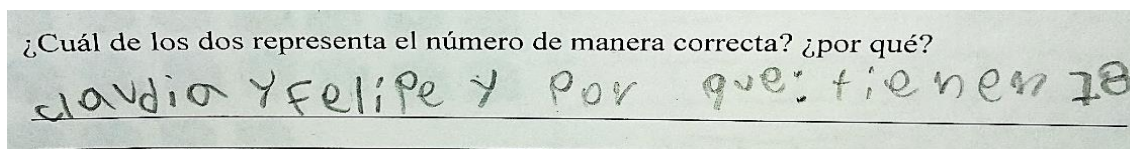 ¿Cuál de los dos representa el número de manera correcta? ¿por qué?
claudia y Felipe y por que: tienen 18